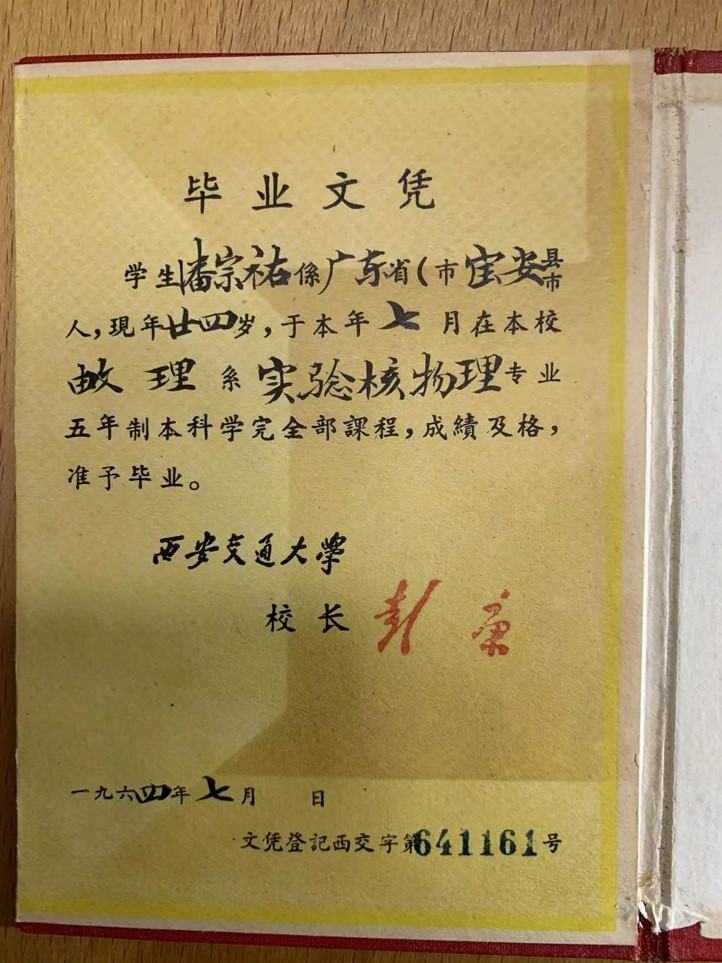 毕业文凭
学生潘宗祐係广东省(市宝安县市
人,現年廿四岁,于本年七月在本校
数理系实验核物理专业
五年制本科学完全部課程,成績及格,
准予毕业。
西安交通大學
校长 彭康
一九六四年七月 日
文凭登記西交字第641161号